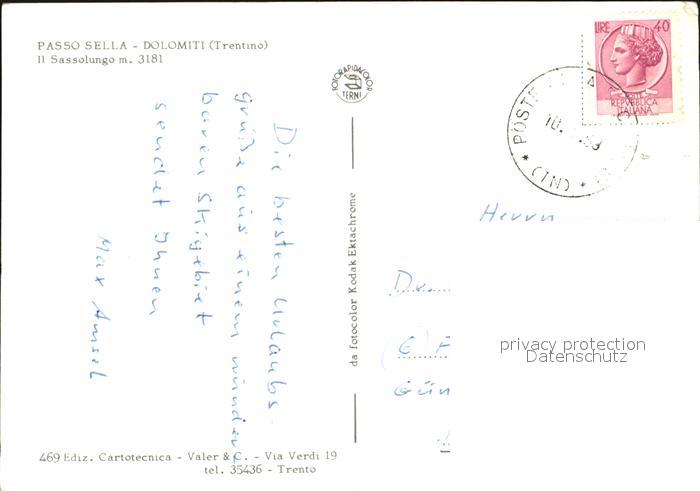 PASSO SELLA - DOLOMITI (Trentino)
Il Sassolungo m. 3181
FOTORAPIDACOLOR
TERNI
LIRE 40
POSTE
REPVBBLICA
ITALIANA
* POSTE
10.
(TN) *
Die besten Urlaubs
grüße aus einem wunder
baren Skigebiet
sendet Ihnen
Max Amsel
da fotocolor Kodak Ektachrome
Herrn
Dr.
Gün
privacy protection
Datenschutz
469 Ediz. Cartotecnica - Valer & C. - Via Verdi 19
tel. 35436 - Trento